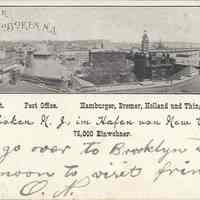 HOBOKEN N.J.
Post Office. Hamburger, Bremer, Holland und Thin
oken N. J. im Hafen von New
75,000 Einwohner.
go over to Brooklyn
noon to visit frien
O. N.